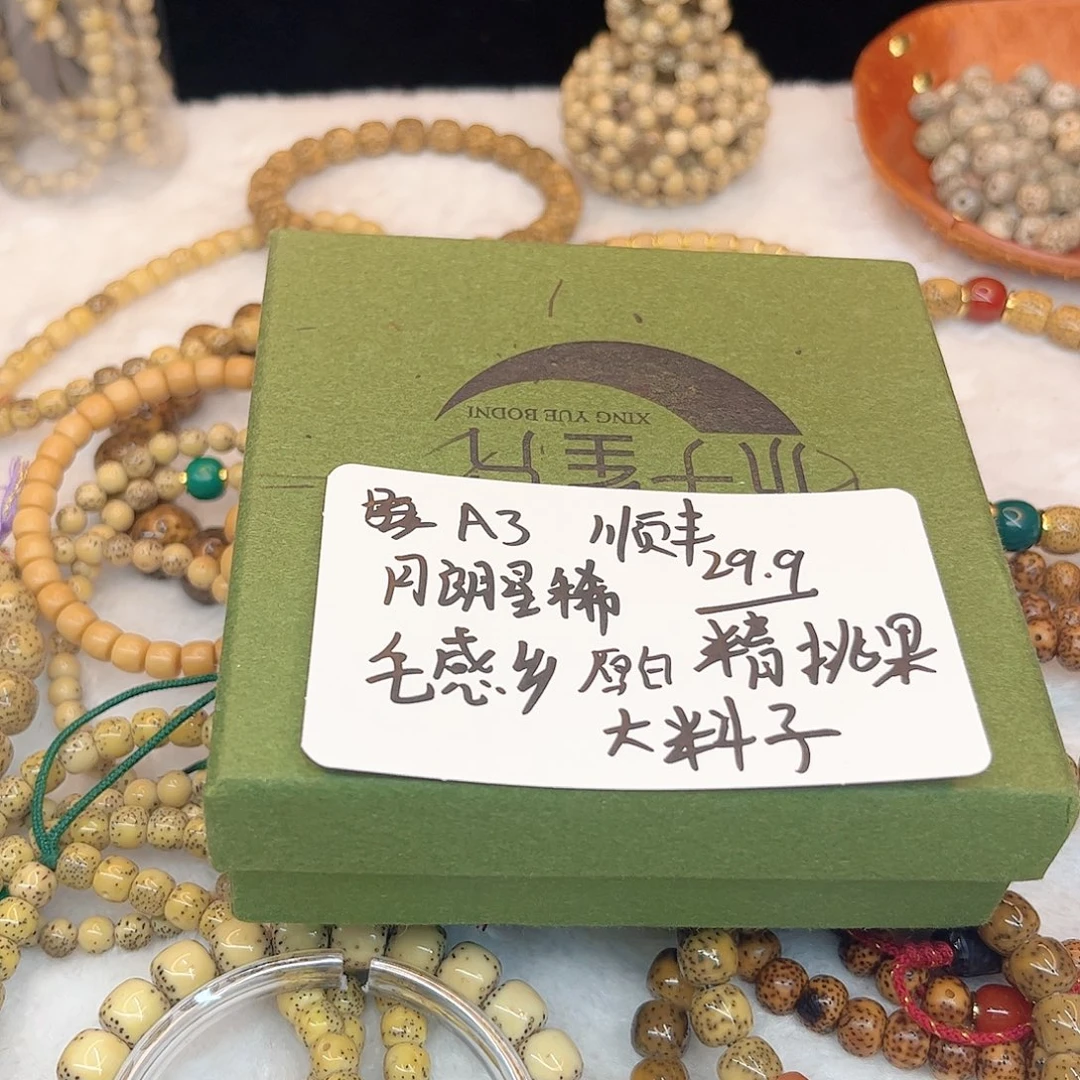 XING YUE BODNI
A3 顺丰
29.9
月朗星稀
毛感乡 原白 精挑果
大料子